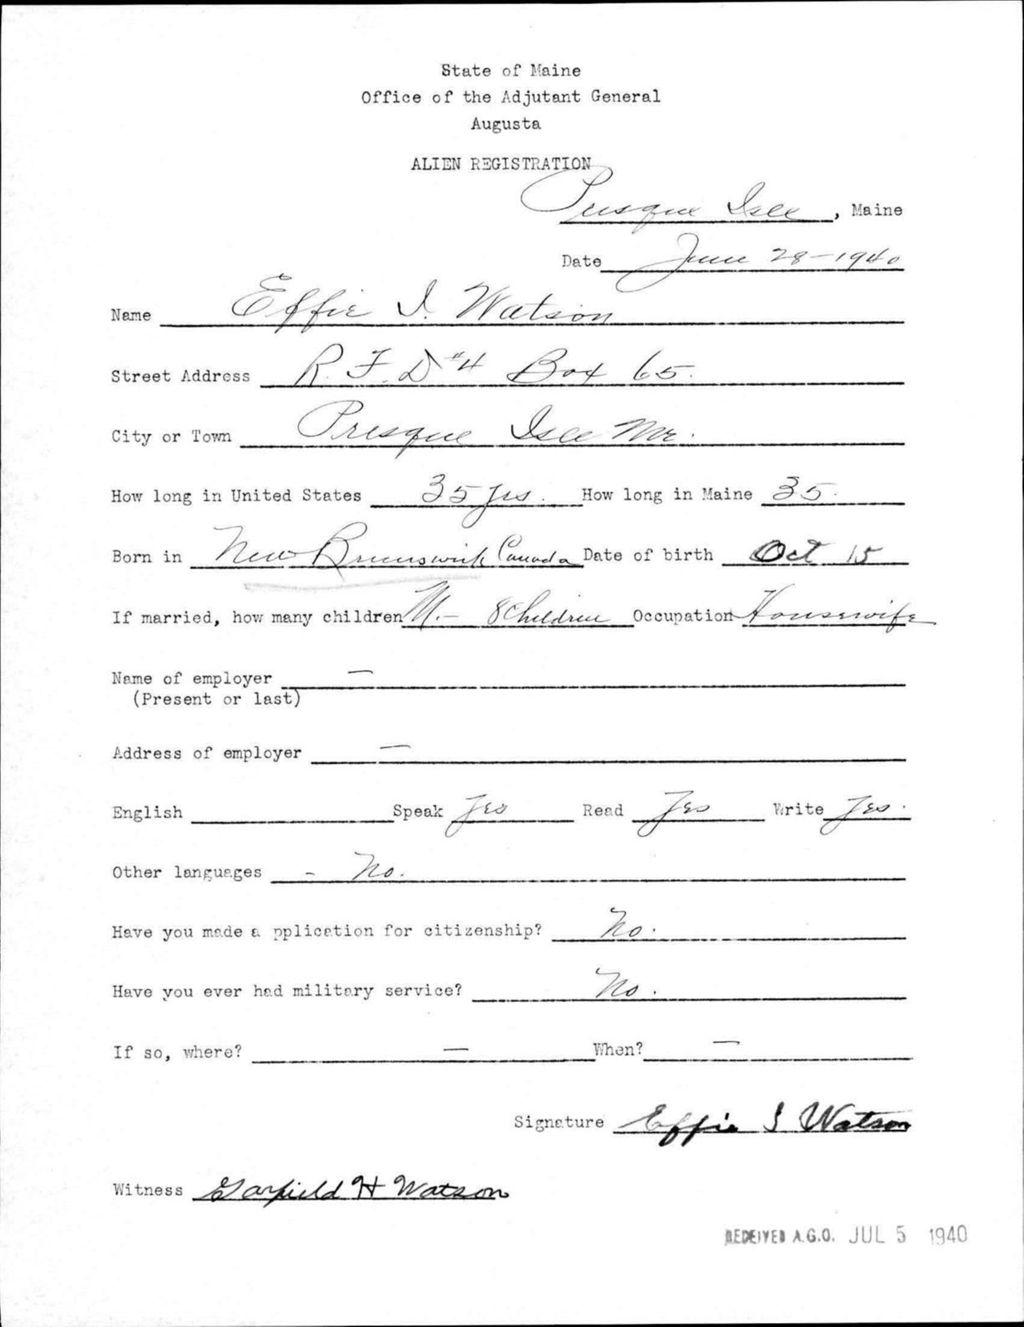 State of Maine
Office of the Adjutant General
Augusta
ALIEN REGISTRATION
Presque Isle, Maine
Date June 28-1940
Name Effie I. Watson
Street Address R.F.D #4 Box 65.
City or Town Presque Isle Me.
How long in United States 35 yrs. How long in Maine 35.
Born in New Brunswick Canada Date of birth Oct 15
If married, how many children M.- 8 Children Occupation Housewife
Name of employer —
(Present or last)
Address of employer —
English Speak Yes Read Yes Write Yes.
Other languages - No.
Have you made a pplication for citizenship? No.
Have you ever had military service? No.
If so, where? — When? —
Signature Effie I Watson
Witness Garfield H Watson
RECEIVED A.G.O. JUL 5 1940